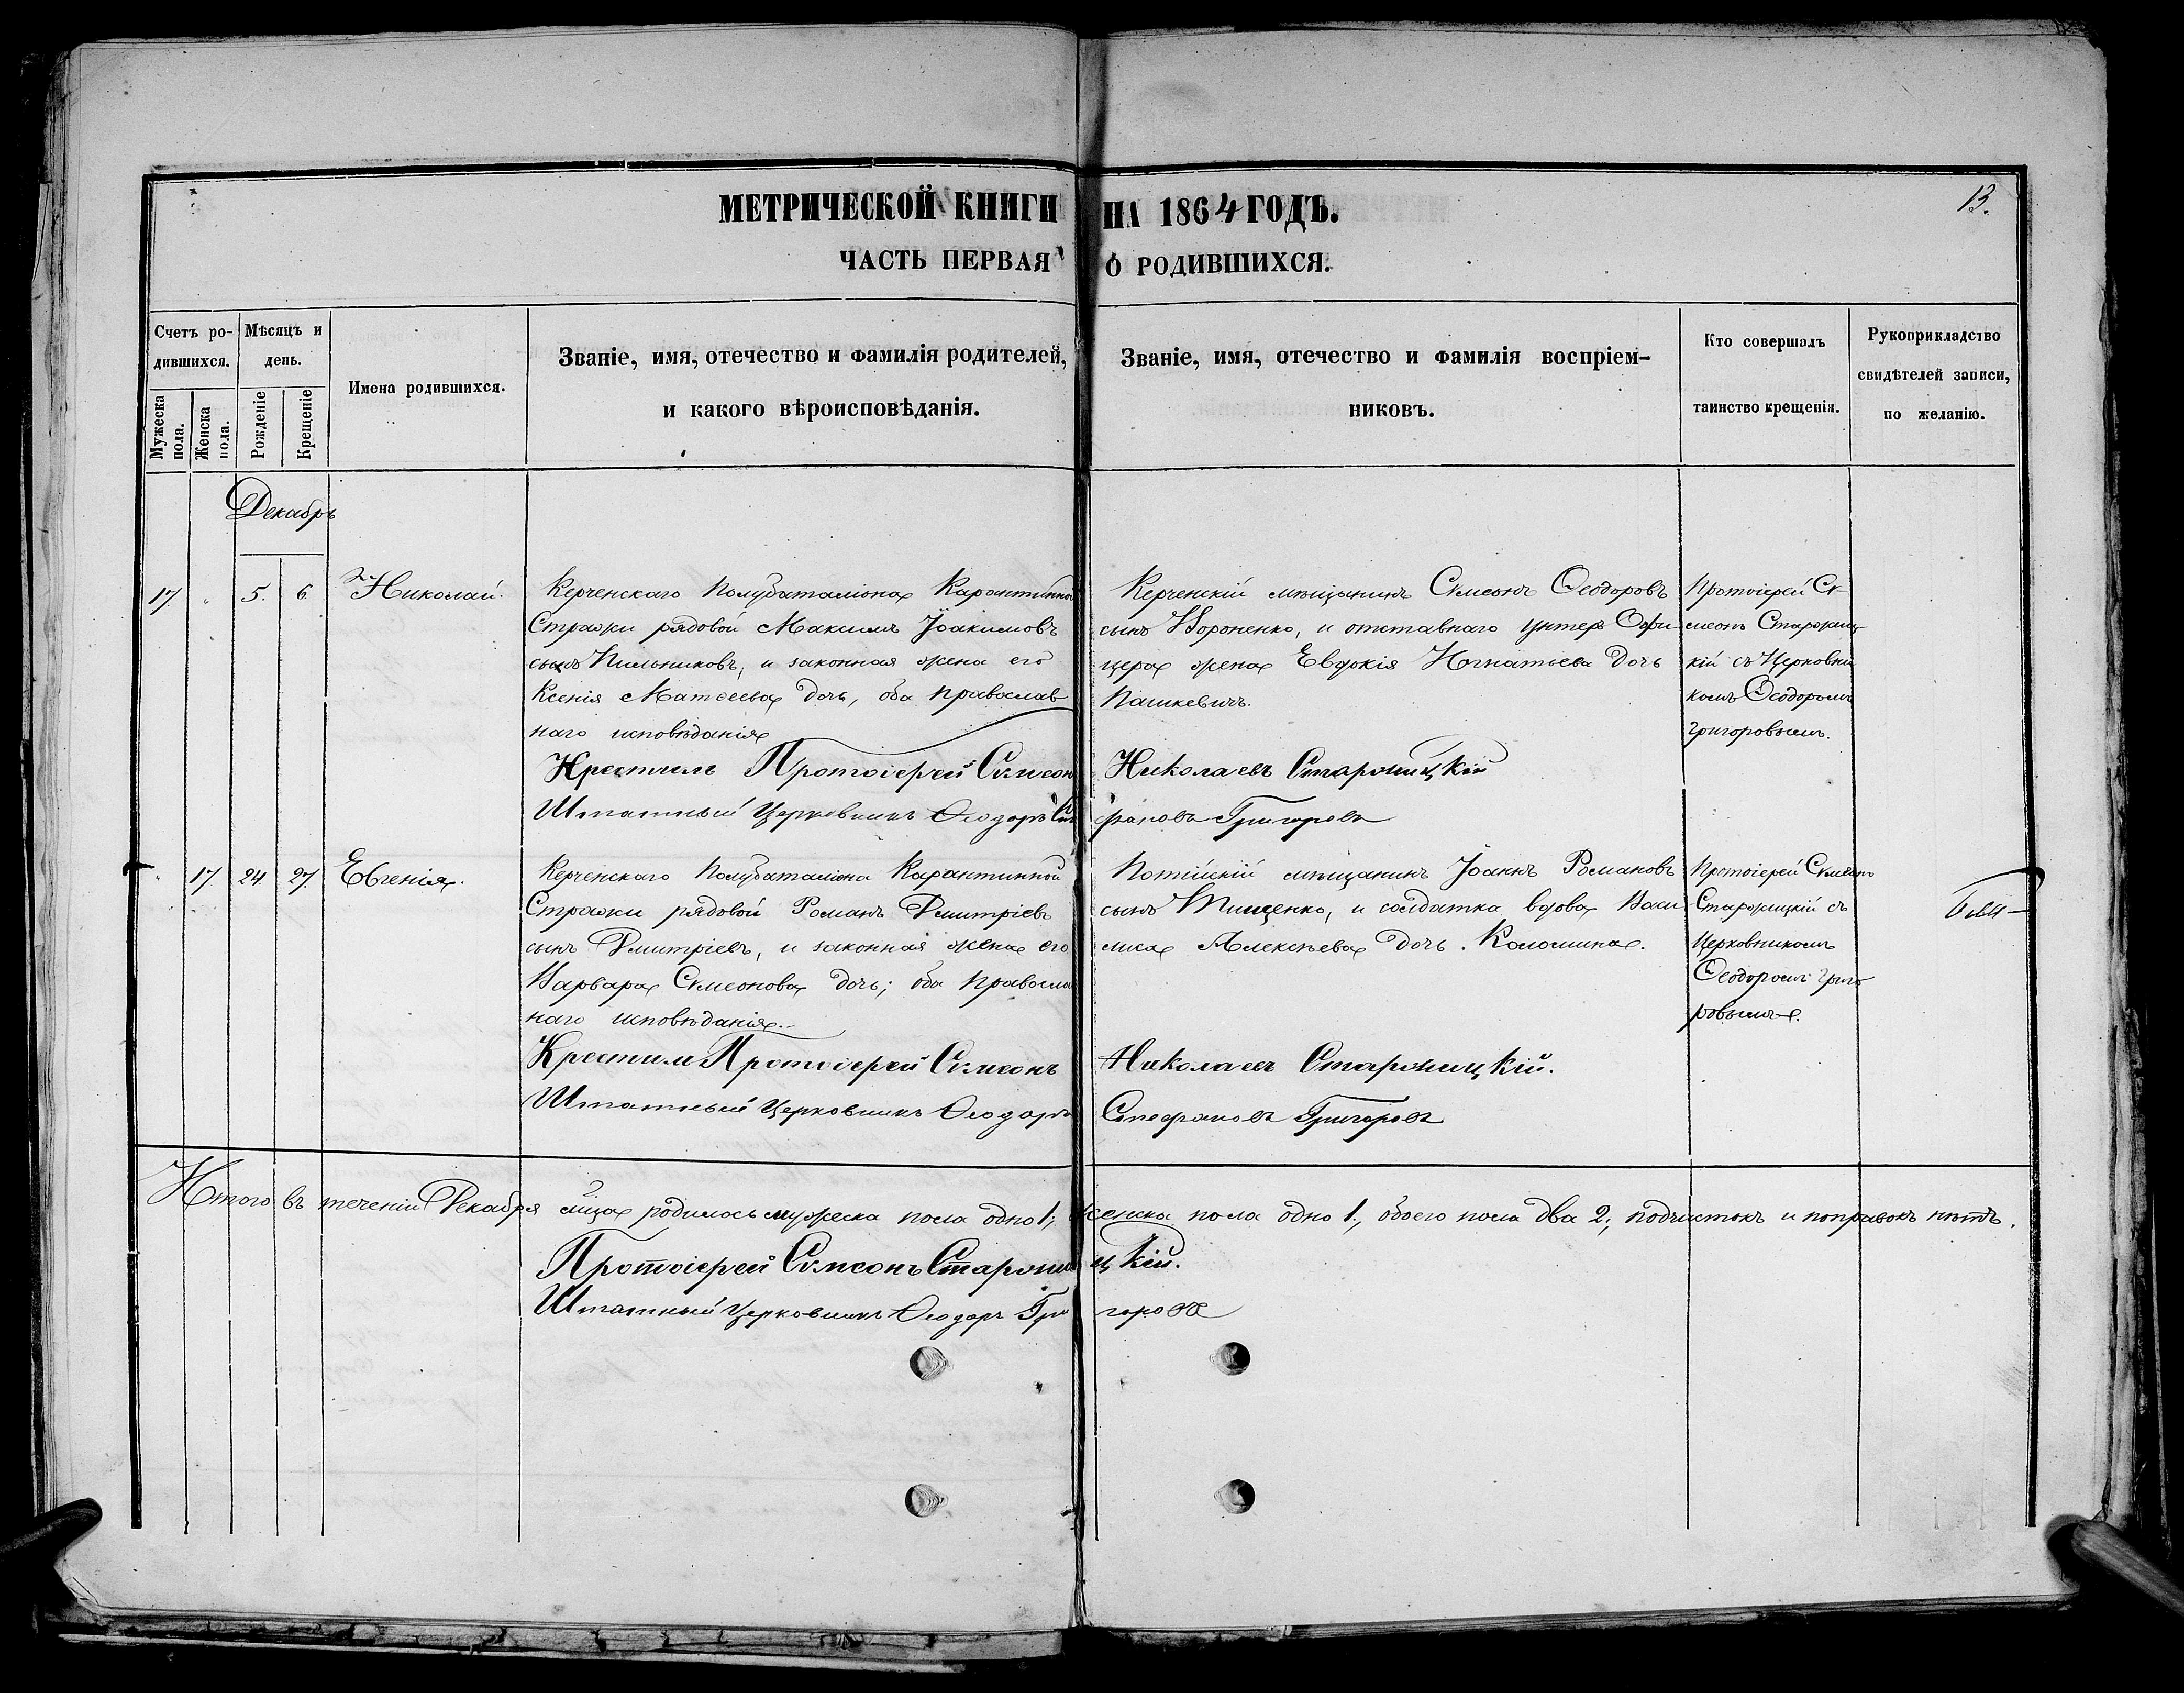 МЕТРИЧЕСКОЙ КНИГИ НА 1864 ГОДЪ.
13.
ЧАСТЬ ПЕРВАЯ О РОДИВШИХСЯ.
Счетъ ро-
дившихся.
Мужеска пола.
Женска пола.
Мѣсяцъ и
день.
Рожденіе
Крещеніе
Имена родившихся.
Званіе, имя, отечество и фамилія родителей,
и какого вѣроисповѣданія.
Званіе, имя, отечество и фамилія воспріем-
никовъ.
Кто совершалъ
таинство крещенія.
Рукоприкладство
свидѣтелей записи,
по желанію.
Декабрь
17. " 5. 6. Николай.
Керченскаго Полубаталіона Карантинной
Стражи рядовой Максимъ Іоакимовъ
сынъ Пильниковъ, и законная жена его
Ксенія Матѳеева дочь, оба православ
наго исповѣданія
Керченскій мѣщанинъ Симеонъ Ѳеодоровъ
сынъ Вороненко, и отставнаго Унтеръ Офи-
цера жена Евдокія Игнатьева дочь
Пашкевичъ.
Протоіерей Си-
меонъ Старожиц-
кій съ Церковни
комъ Ѳеодоромъ
Григоровымъ.
Крестилъ Протоіерей Симеонъ Николаевъ Старожицкій
Штатный Церковникъ Ѳеодоръ Стефановъ Григоровъ
" 17. 24. 27. Евгенія.
Керченскаго Полубаталіона Карантинной
Стражи рядовой Романъ Дмитріевъ
сынъ Дмитріевъ, и законная жена его
Варвара Симеонова дочь; оба православ
наго исповѣданія.
Потійскій мѣщанинъ Іоаннъ Романовъ
сынъ Тищенко, и солдатка вдова Васи
лиса Алексѣева дочь. Коломина.
Протоіерей Симеонъ
Старожицкій съ
Церковникомъ
Ѳеодоромъ Григо
ровымъ.
Крестилъ Протоіерей Симеонъ Николаевъ Старожицкій.
Штатный Церковникъ Ѳеодоръ Стефановъ Григоровъ
Итого въ теченіи Декабря мѣсяца родилось мужеска пола одно 1, женска пола одно 1, обоего пола два 2; подчистокъ и поправокъ нѣтъ.
Протоіерей Симеонъ Старожицкій.
Штатный Церковникъ Ѳеодоръ Григоровъ